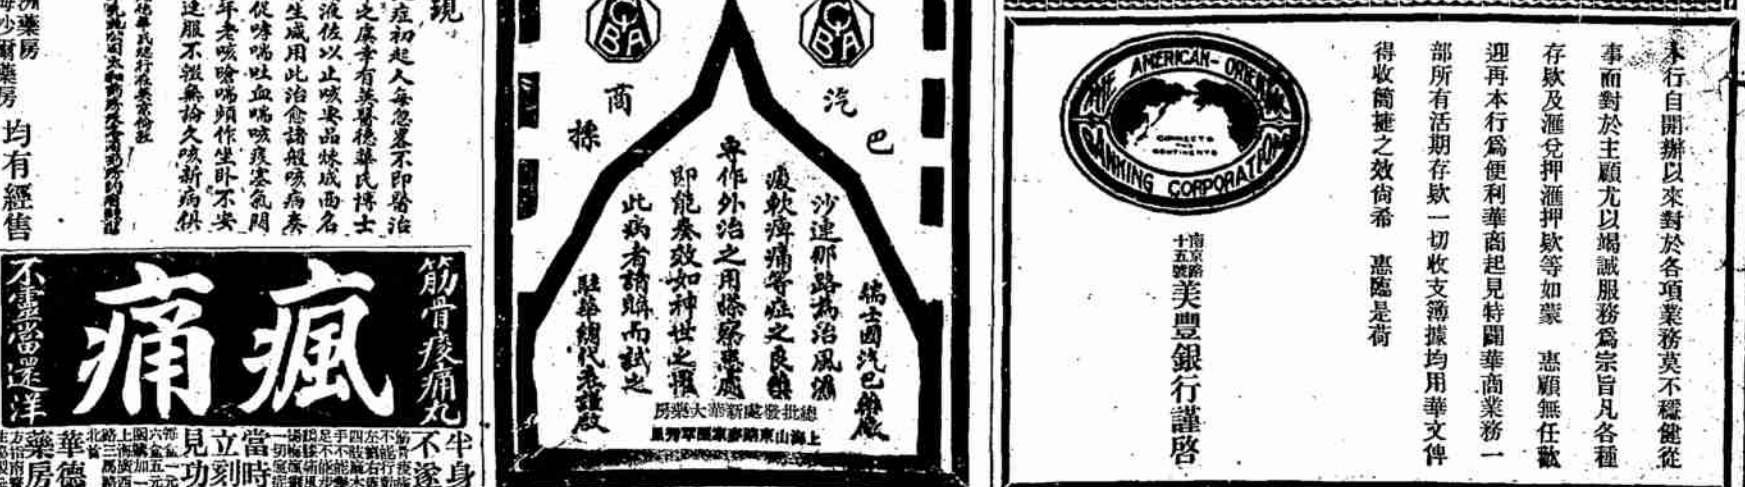 本行自開辦以來對於各項業務莫不穩健從
事而對於主顧尤以竭誠服務爲宗旨凡各種
存欵及滙兌押滙押欵等如蒙 惠顧無任歡
迎再本行爲便利華商起見特闢華商業務一
部所有活期存欵一切收支簿據均用華文俾
得收簡捷之效尙希 惠臨是荷
THE AMERICAN-ORIENTAL
BANKING CORPORATION
CONNECTS
THE
CONTINENTS
南京路
十五號
美豐銀行謹啓
CIBA
CIBA
汽巴
商標
瑞士國汽巴藥廠
沙連那路爲治風濕
痠軟痺痛等症之良藥
專作外治之用搽察患處
即能奏效如神世之罹
此病者請購而試之
駐華總代表謹啟
總批發處新華大藥房
現
症初起人每忽畧不即醫治
之虞幸有英醫德華氏博士
液佐以止咳妥品煉成西名
生咸用此治愈諸般咳病奏
促哮喘吐血喘咳痰塞氣悶
年老咳嗆喘頻作生卧不安
連服不輟無論久咳新病俱
洲藥房
海沙爾藥房
均有經售
筋骨痠痛丸
瘋痛
不靈當還洋
半身
不遂
當時
立刻
見功
華德
藥房